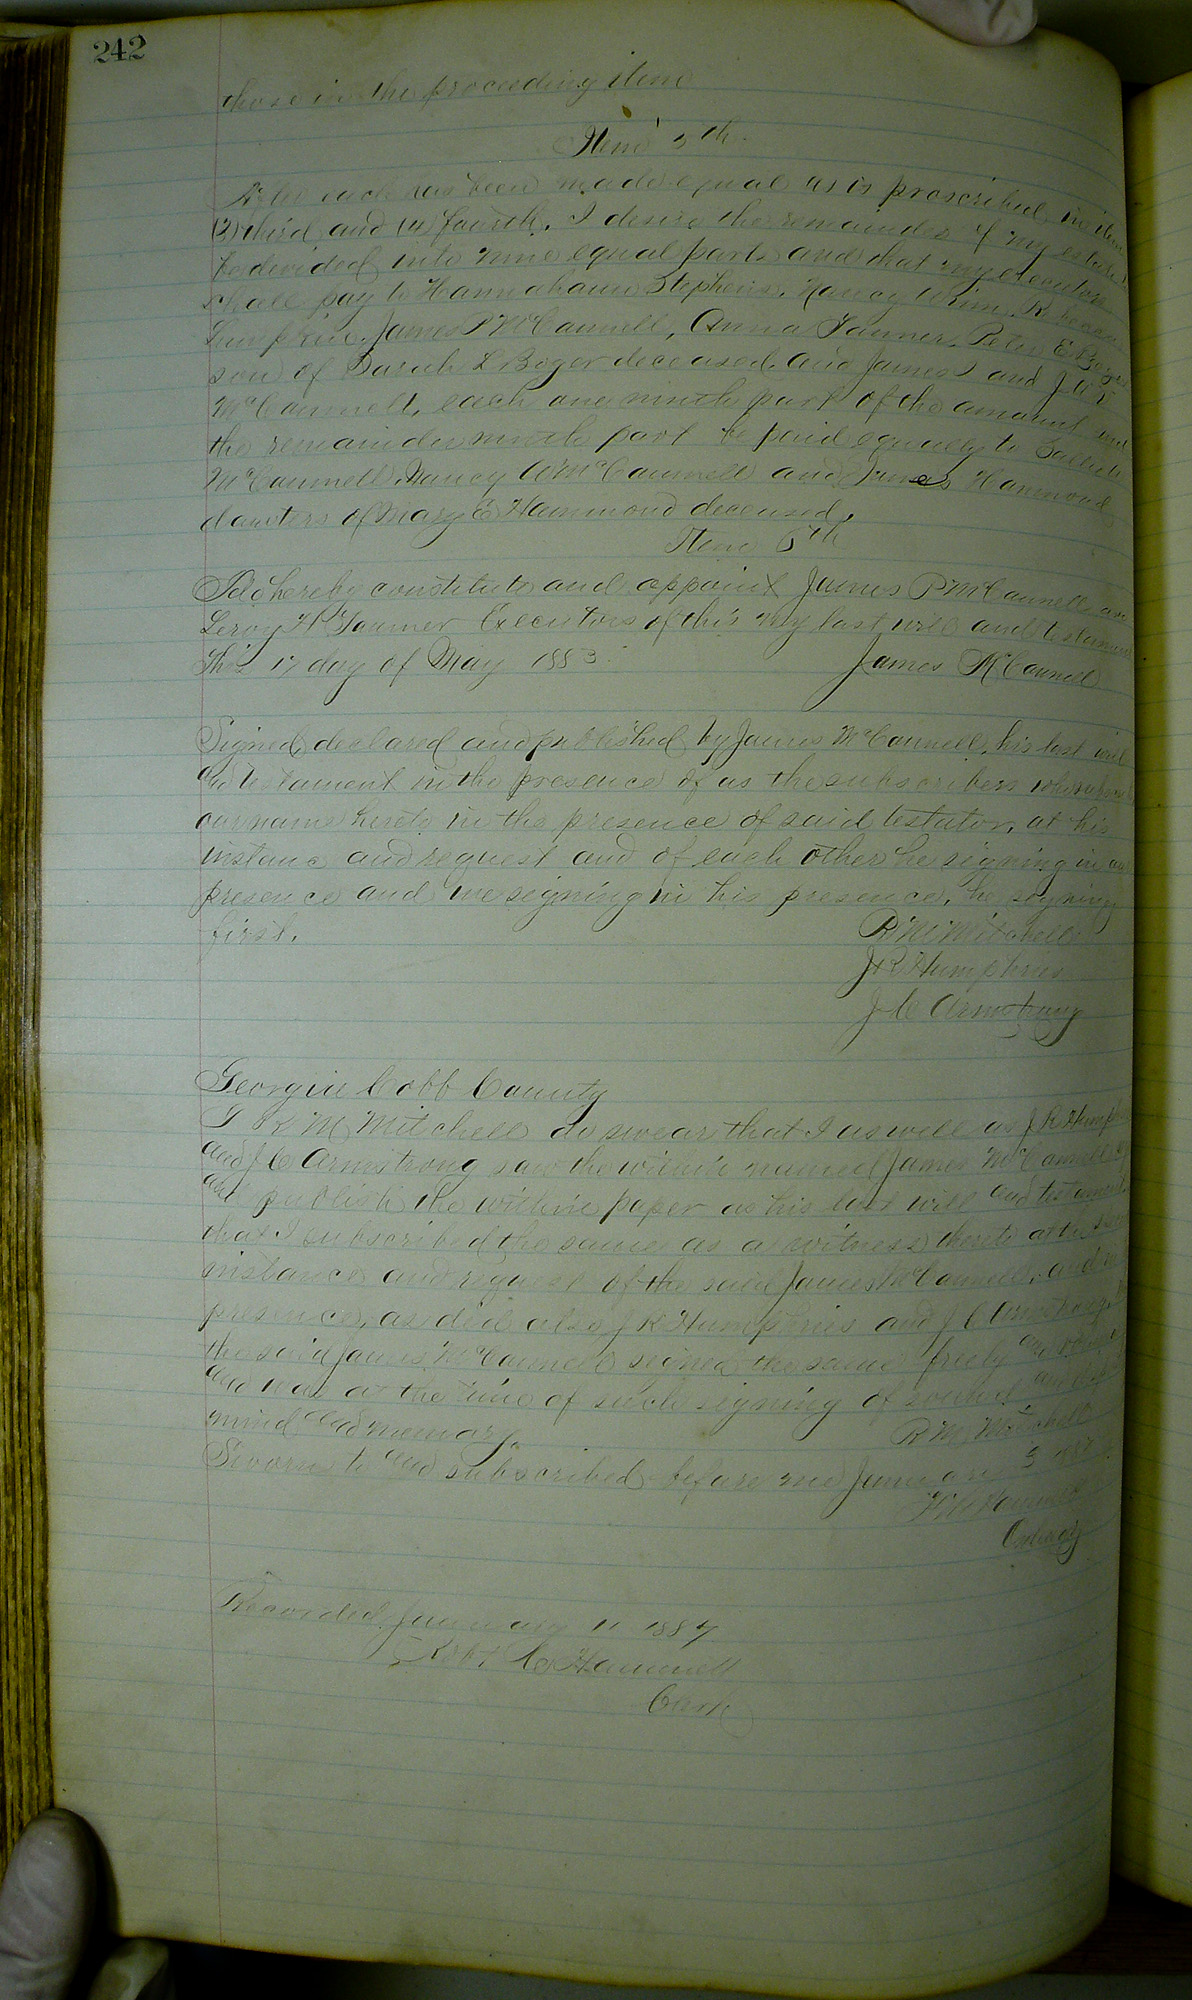 242
those in the proceeding item
Item 5th
After each has been made equal as is proscribed in item
(3) third and (4) fourth, I desire the remainder of my estate
be devided into nine equal parts and that my executors
shall pay to Hannahann Stephens, Nancy Winn, Rebecca
Lumpkin, James P McConnell, Anna Tanner, Peter E Boger
son of Sarah L Boger deceased, and James and J W T
McConnell, each one ninth part of the amount and
the remainder ninth part be paid equally to
McConnell, Nancy W McConnell and James Hammond
dawters of Mary E Hammond deceased,
Item 6th
I do hereby constitute and appoint James P McConnell and
Leroy H Tanner Executors of this my last will and testament
This 17 day of May 1883. James McConnell
Signed, declared and published by James McConnell, his last will
and testament in the presence of us the subscribers who
our name hereto in the presence of said testator, at his
instance and request and of each other he signing in our
presence and we signing in his presence, he signing
first. R M Mitchell
J R Humphries
J C Armstrong
Georgia Cobb County
I R M Mitchell do swear that I as well as J R Humphries
and J C Armstrong saw the within named James McConnell
and publish the within paper as his last will and testament
that I subscribed the same as a witness thereto at the
instance and request of the said James McConnell, and in
presence, as did also J R Humphries and J C Armstrong,
the said James McConnell signed the same freely and
and was at the time of such signing of sound and
mind and memory, R M Mitchell
Sworn to and subscribed before me January 3 188
Ordinary
Recorded January 11 1887
Clerk